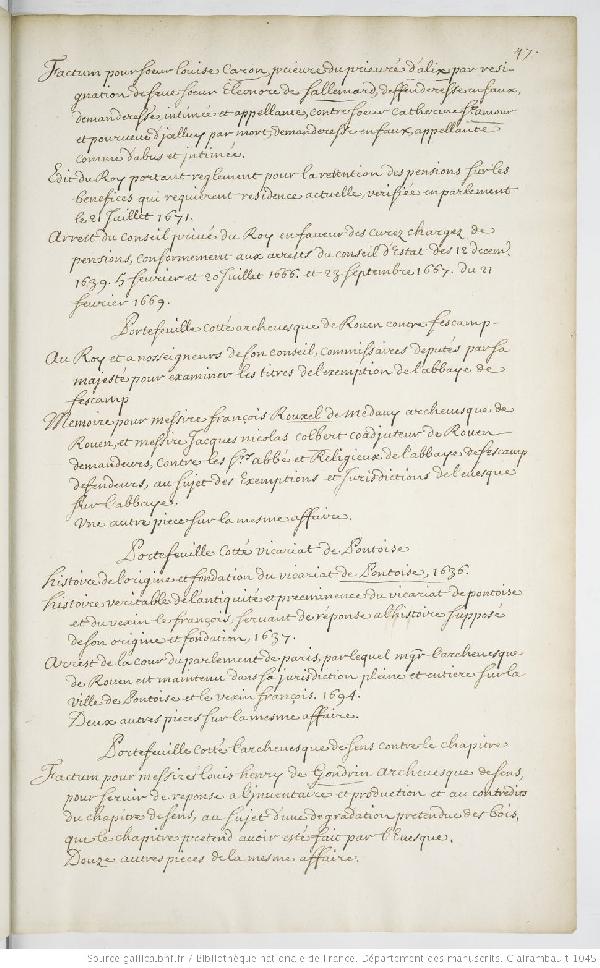 47.
Factum pour soeur louise Caron, prieure du prieuré d'alix par resi-
gnation de feue soeur Eleonore de Sallemard, deffenderesse en faux,
demanderesse, intimée et appellante, contre soeur Catherine St amour
et pourveue d'icelluy par mort, demanderesse en faux, appellante
comme d'abus et intimée.
Edit du Roy portant reglement pour la retention des pensions sur les
benefices qui requierent residence actuelle, verifiée en parlement
le 21 Juillet 1671.
Arrest du Conseil privé du Roy en faveur des curez chargez de
pensions, conformement aux arrests du conseil d'Estat des 12 decem.
1639. 5 fevrier et 20 Juillet 1666. et 23 septembre 1667. du 21
fevrier 1669.
Portefeuille cotté archevesque de Rouen contre fescamp
Au Roy et a nosseigneurs de son conseil, commissaires deputés par sa
majesté pour examiner les titres de l'exemption de l'abbaye de
fescamp
Memoire pour messire françois Rouxel de medavy archevesque de
Rouen, et messire Jacques nicolas Colbert coadjuteur de Rouen
demandeurs, contre les Srs abbé et Religieux de l'abbaye de fescamp
defendeurs, au sujet des Exemptions et Jurisdictions de l'evesque
sur l'abbaye.
Une autre piece sur la mesme affaire.
Portefeuille Cotté vicariat de Pontoise
histoire de l'origine et fondation du vicariat de Pontoise, 1636.
histoire veritable de l'antiquité et preeminence du vicariat de pontoise
et du vexin le françois, servant de réponse a l'histoire supposé
de son origine et fondation, 1637.
Arrest de la cour du parlement de paris, par lequel mgr l'archevesque
de Rouen est maintenu dans sa jurisdiction pleine et entiere sur la
ville de Pontoise et le vexin françois. 1694.
Deux autres pieces sur la mesme affaire.
Portefeuille Cotté l'archevesque de sens contre le chapitre
Factum pour messire louis henry de Gondrin archevesque de sens,
pour servir de reponse a l'inventaire et production et au contredits
du chapitre de sens, au sujet d'une degradation pretendue des bois,
que le chapitre pretend avoir esté fait par l'Evesque.
Douze autres pieces de la mesme affaire.
Source gallica.bnf.fr / Bibliothèque nationale de France. Département des manuscrits. Clairambault 1045